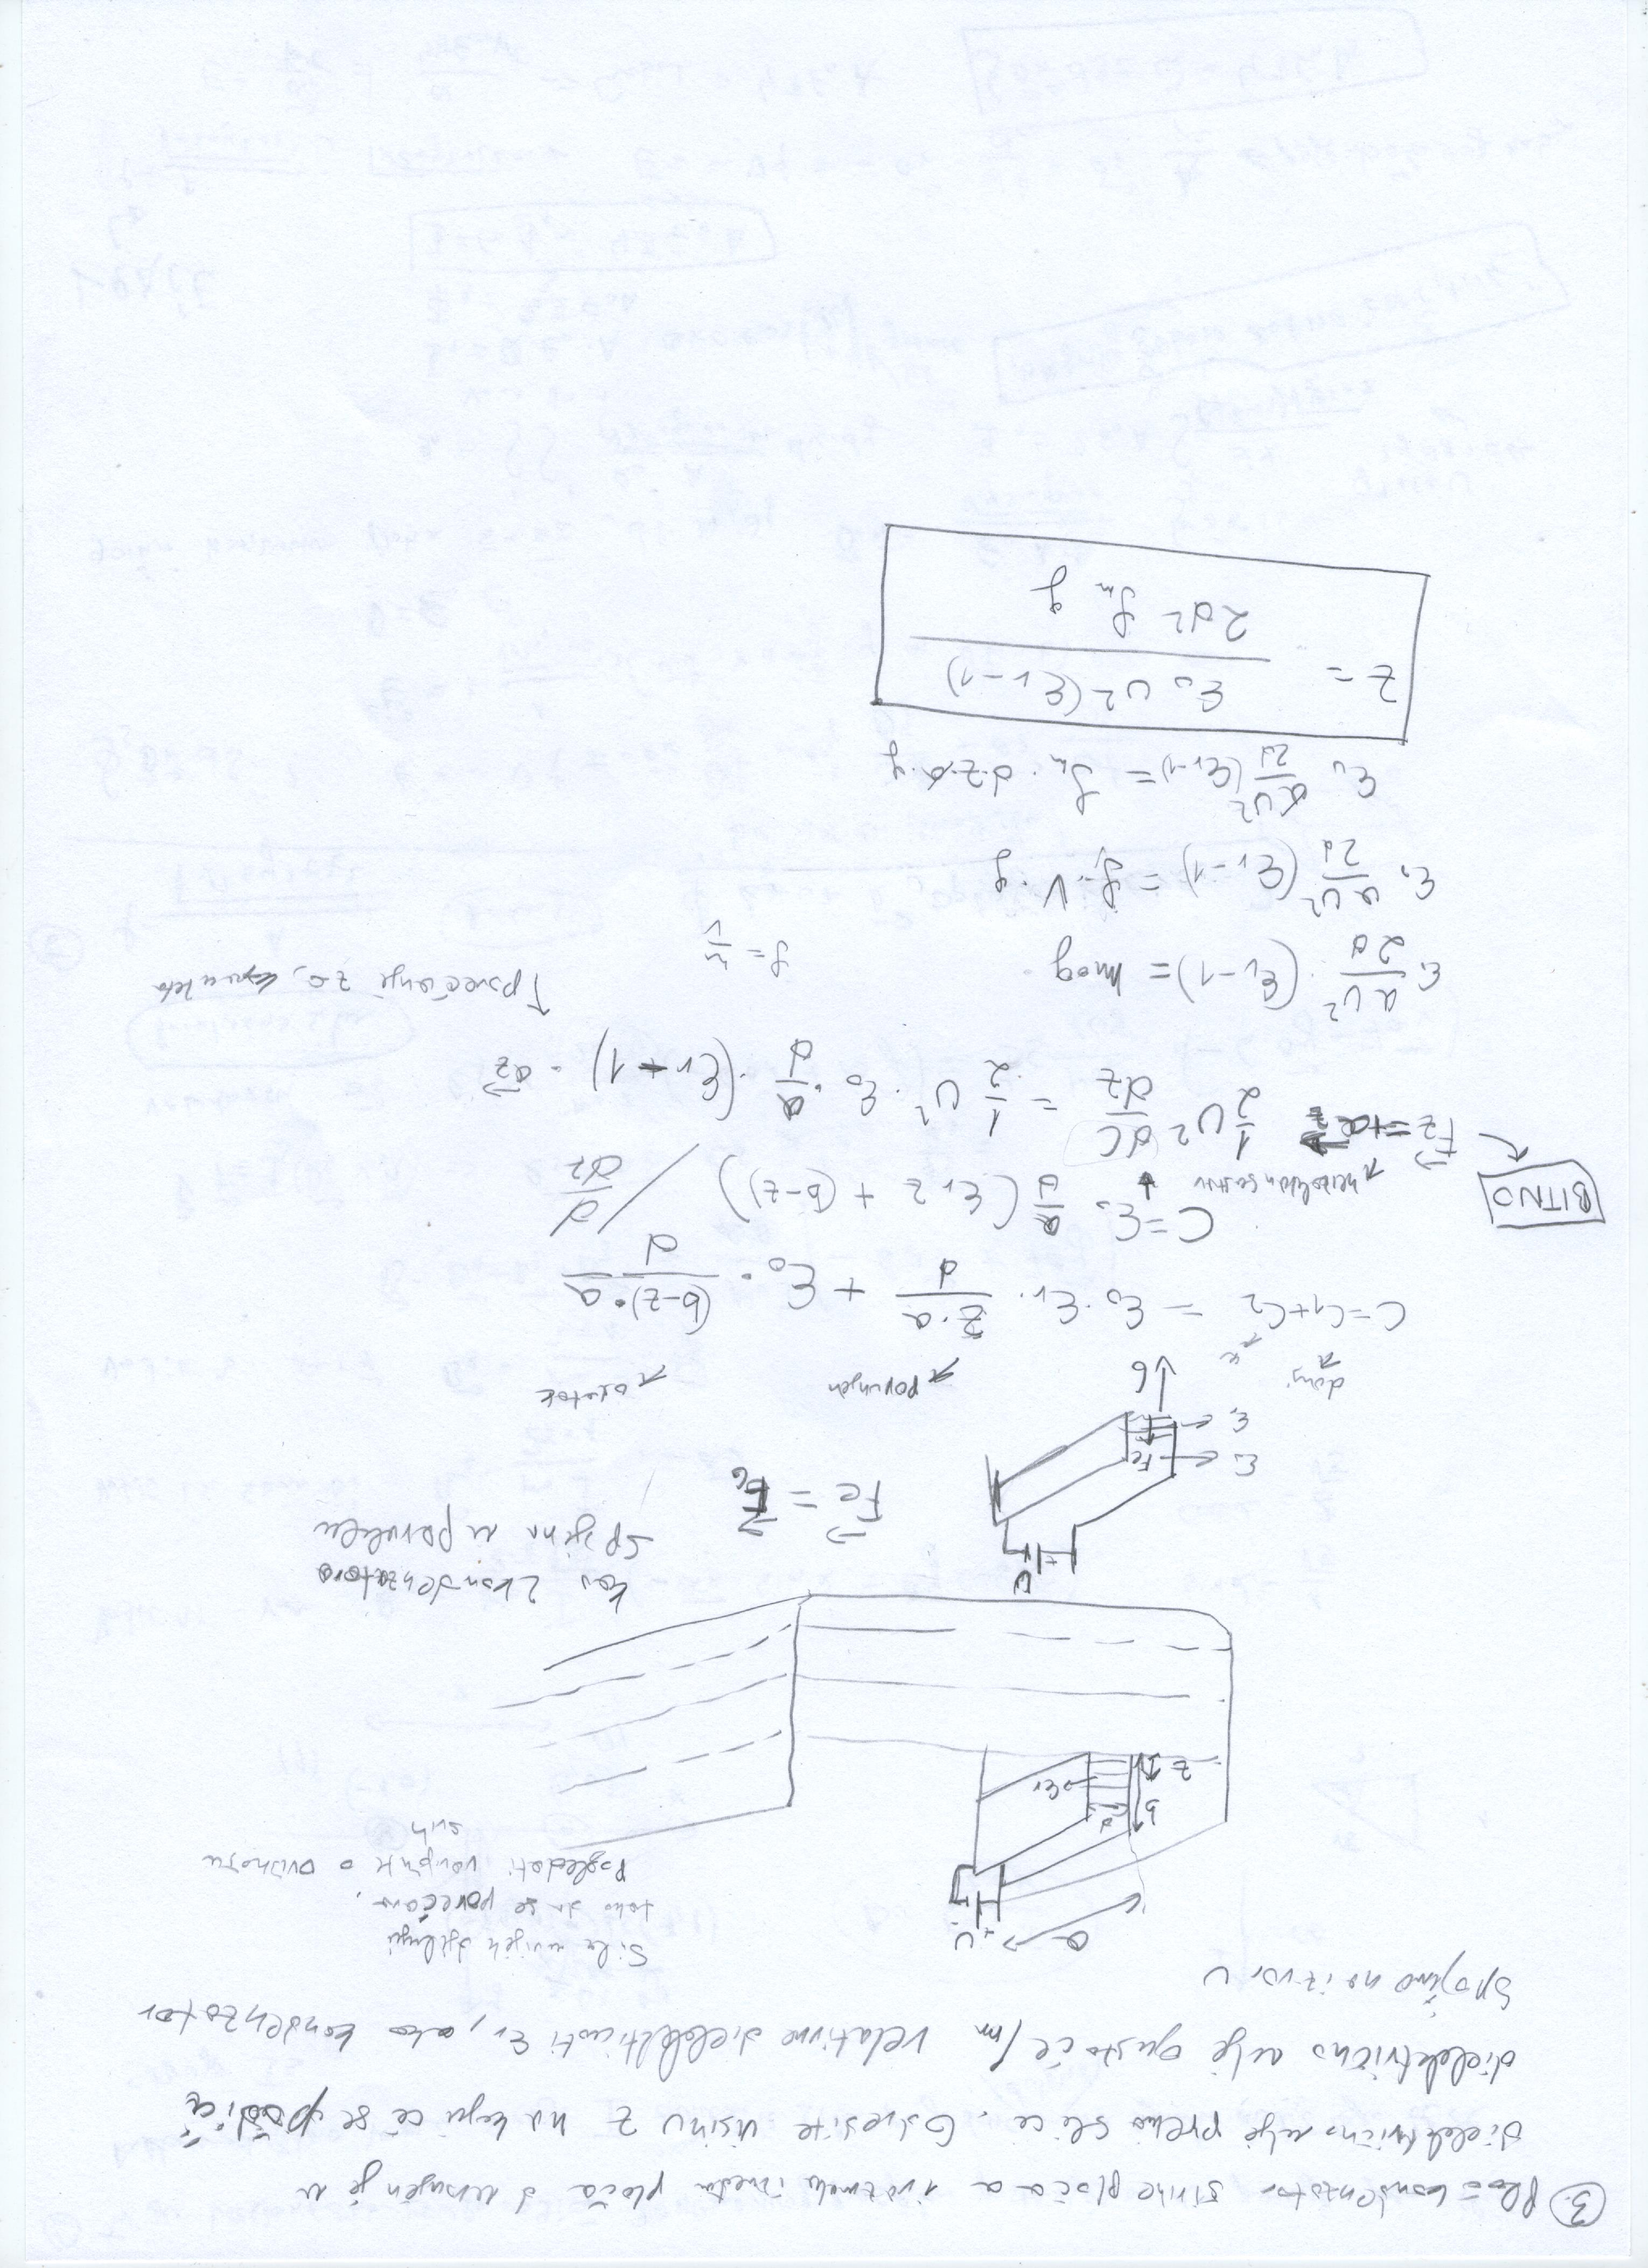 3. Pločkondenzator širine ploča a i razmaka između ploča d uronjen je u
dielektrično ulje prema slici. Odredite visinu z na koju će se podići
dielektrično ulje gustoće ρm relativne dielektičnosti εr, ako kondenzator
spojimo na izvor U
Sila uvijek djeluje
tako da se povećava.
Pogledati varijante o ovisnosti
svih
a
+ U -
b
d
z
εr
Kao 2 kondenzatora
spojena u paralelu
U
+
Fe = FG
ε0
Fe
εr
G
donji
popunjen
ostatok
C = C1 + C2 = ε0 · εr · z·a/d + ε0 · (b-z)·a/d
C = ε0 a/d (εr z + (b-z)) / d/dz
BITNO
neizoliran sustav
Fz = +az 1/2 U² dC/dz = 1/2 U² · ε0 · a/d · (εr - 1) · az
↑ povećanje za, kapaciteta
ε0 aU²/2d · (εr - 1) = m·g
ρ = m/V
ε0 aU²/2d (εr - 1) = ρ · V · g
ε0 aU²/2d (εr-1) = ρm · d·z·a·g
z = ε0 U² (εr - 1) / 2d² ρm g